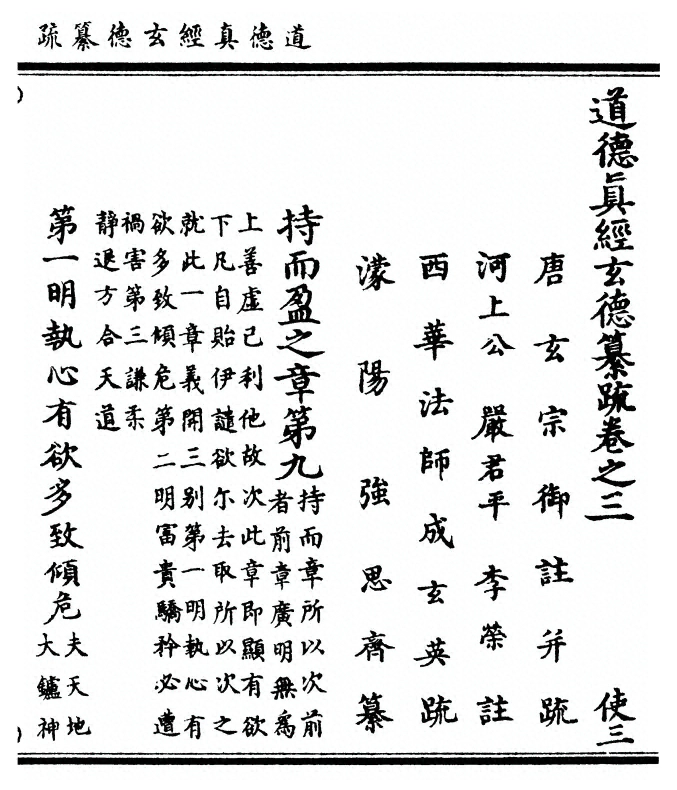 道德真經玄德纂疏
道德眞經玄德纂䟽卷之三 使三
唐玄宗御註并䟽
河上公 嚴君平 李榮 註
西華法師成玄英䟽
濛陽強思齊纂
持而盈之章第九
持而章所以次前
者前章廣明無爲
上善虛己利他故次此章即顯有欲
下凡自貽伊譴欲尔去取所以次之
就此一章義開三别第一明執心有
欲多致傾危第二明富貴驕矜必遭
禍害第三謙柔
靜退方合天道
第一明執心有欲多致傾危
夫天地
大鑪神